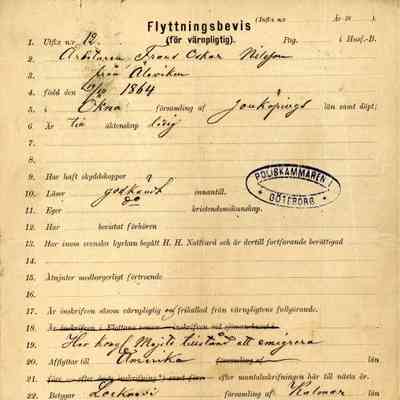 Flyttningsbevis
(för värnpligtig).
1. Utfix n:r 12. Pag. i Husf.-B.
2. Arbetaren Frans Oskar Nilsson
3. från Åleviken
4. född den 1864
5. i Ökna församling af Jonköpings län samt döpt;
6. Är till äktenskap ledig
7.
8.
9. Har haft skyddskoppor
10. Läser godkändt innantill.
11. Eger do kristendomskunskap.
12. Har bevistat förhören
13. Har inom svenska kyrkan begått H. H. Nattvard och är dertill fortfarande berättigad
14.
15. Åtnjuter medborgerligt förtroende
16.
17. Är inskrifven såsom värnpligtig frikallad från värnpligtens fullgörande.
18. Är inskrifven i
19. Har kongl Majts tillstånd att emigrera
20. Afflyttar till Amerika församling af län
21. efter mantalsskrifningen här till nästa år.
22. Betygar Locknevi af Kalmar län
POLISKAMMAREN I
GÖTEBORG